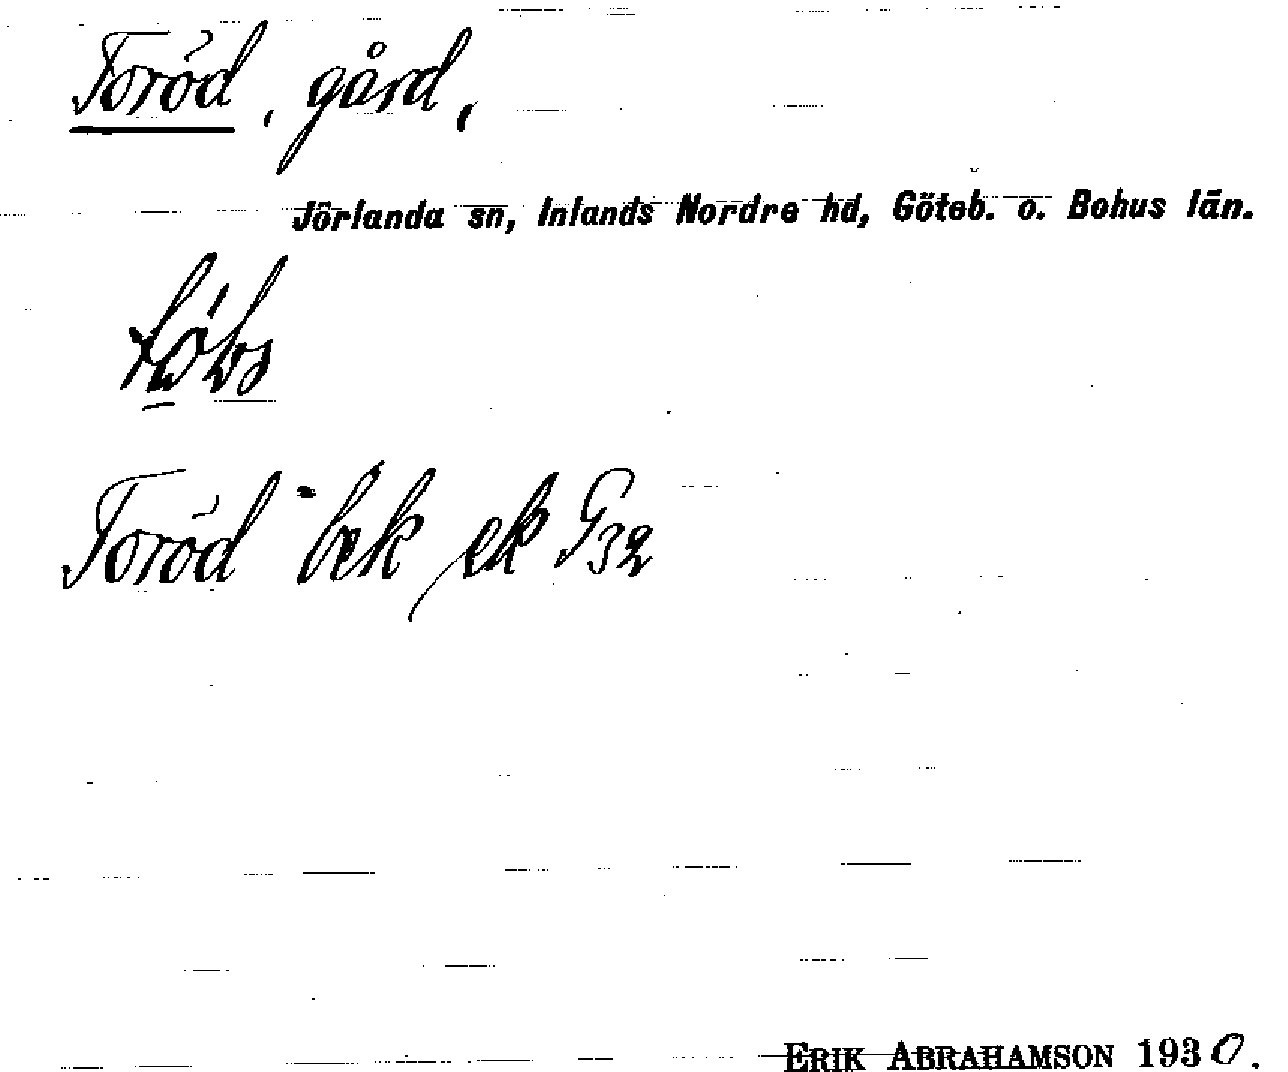 Toröd, gård,
Jörlanda sn, Inlands Nordre hd, Göteb. o. Bohus län.
Toröd bek ek G32
ERIK ABRAHAMSON 1930.